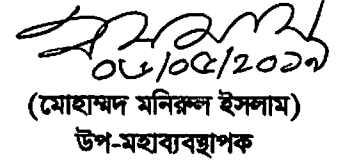 ০৮/০৫/২০১৭
(মোহাম্মদ মনিরুল ইসলাম)
উপ-মহাব্যবস্থাপক